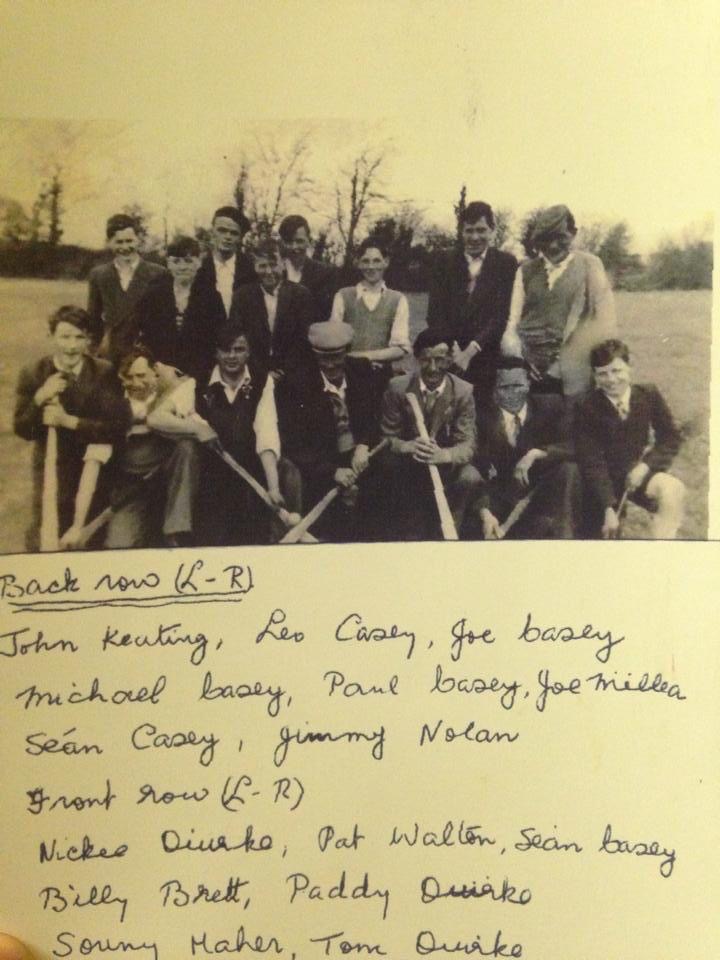 Back row (L-R)
John Keating, Leo Casey, Joe Casey
Michael Casey, Paul Casey, Joe Millea
Seán Casey, Jimmy Nolan
Front row (L-R)
Nickee Quirke, Pat Walton, Seán Casey
Billy Brett, Paddy Quirke
Sonny Maher, Tom Quirke